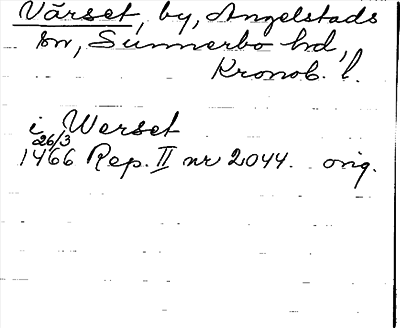 Värset, by, Angelstads
sn, Sunnerbo hd,
Kronob. l.
i Werset
26/3
1466 Rep. II nr 2044. orig.